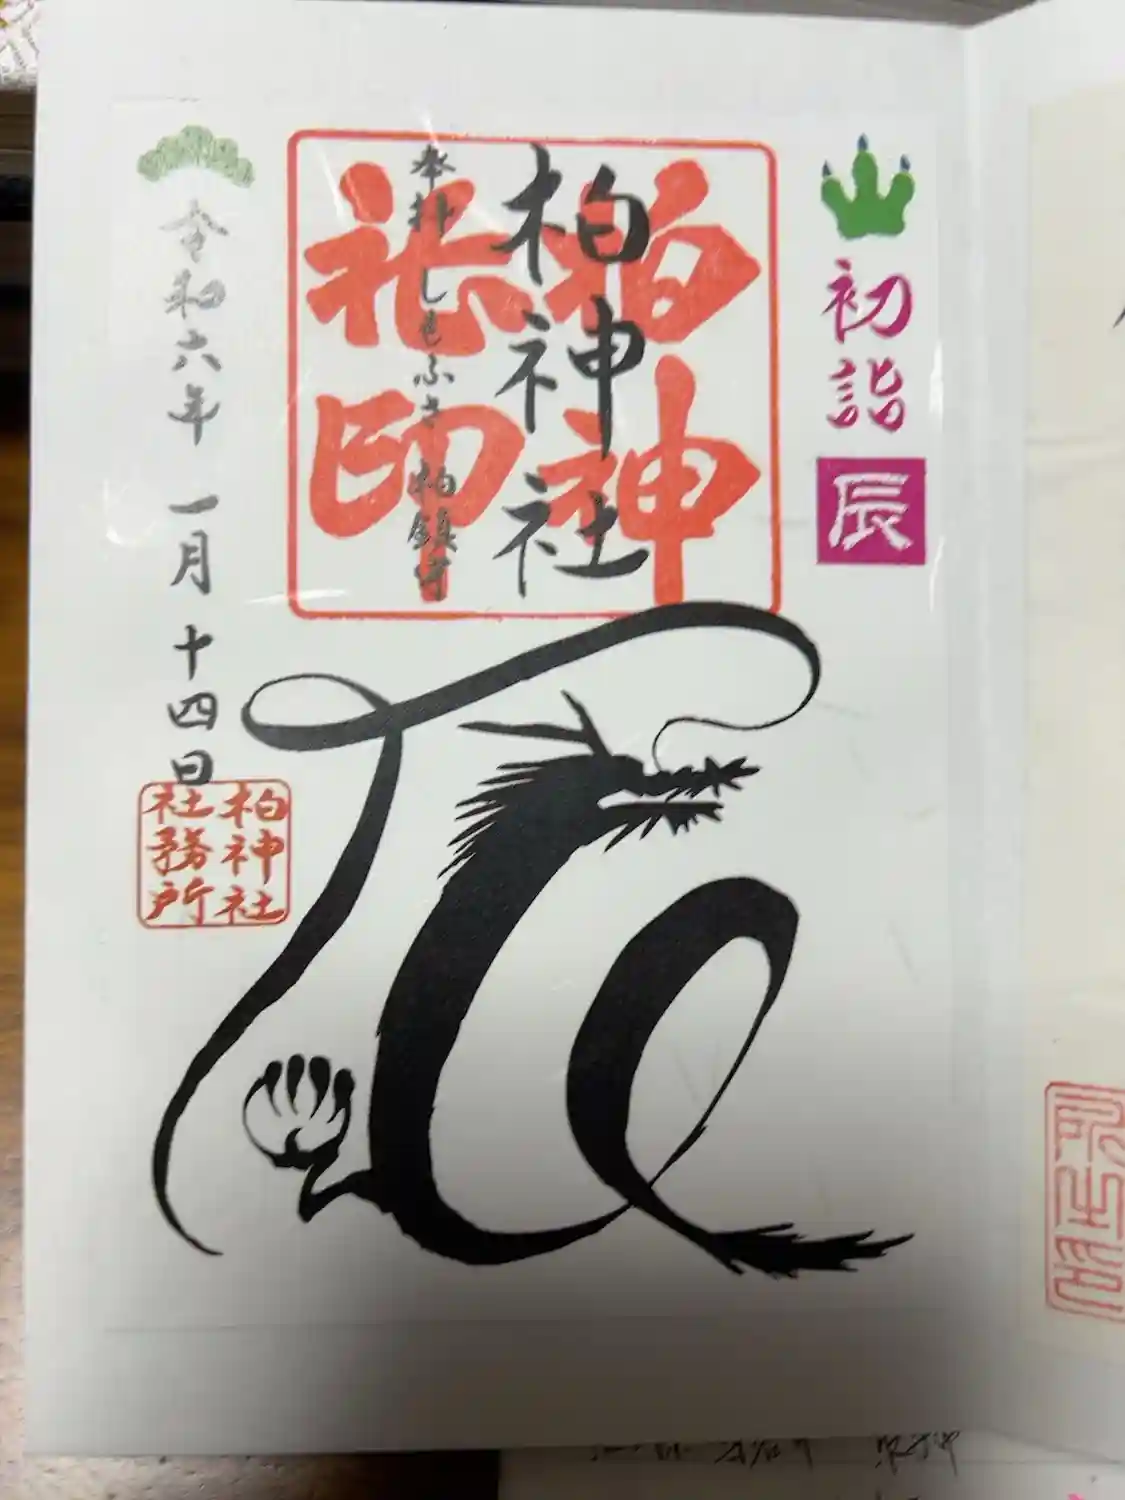 初詣
辰
柏神社
奉拝 しもふさ 柏鎮守
柏神社印
令和六年 一月 十四日
柏神社
社務所